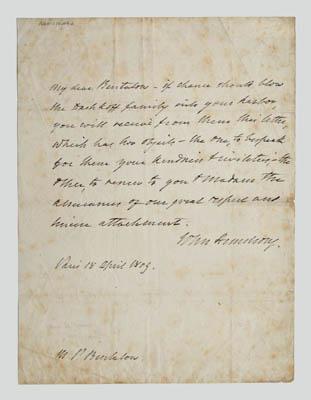 My dear Bentalou - if chance should blow
the Daschkoff family into your harbor,
you will receive from them this letter,
which has two objects - the one, to bespeak
for them your kindness & civilities - the
other, to renew to you & Madam the
assurances of our great respect and
sincere attachment.
John Armstrong.
Paris 18 April 1809.
M. P. Bentalou